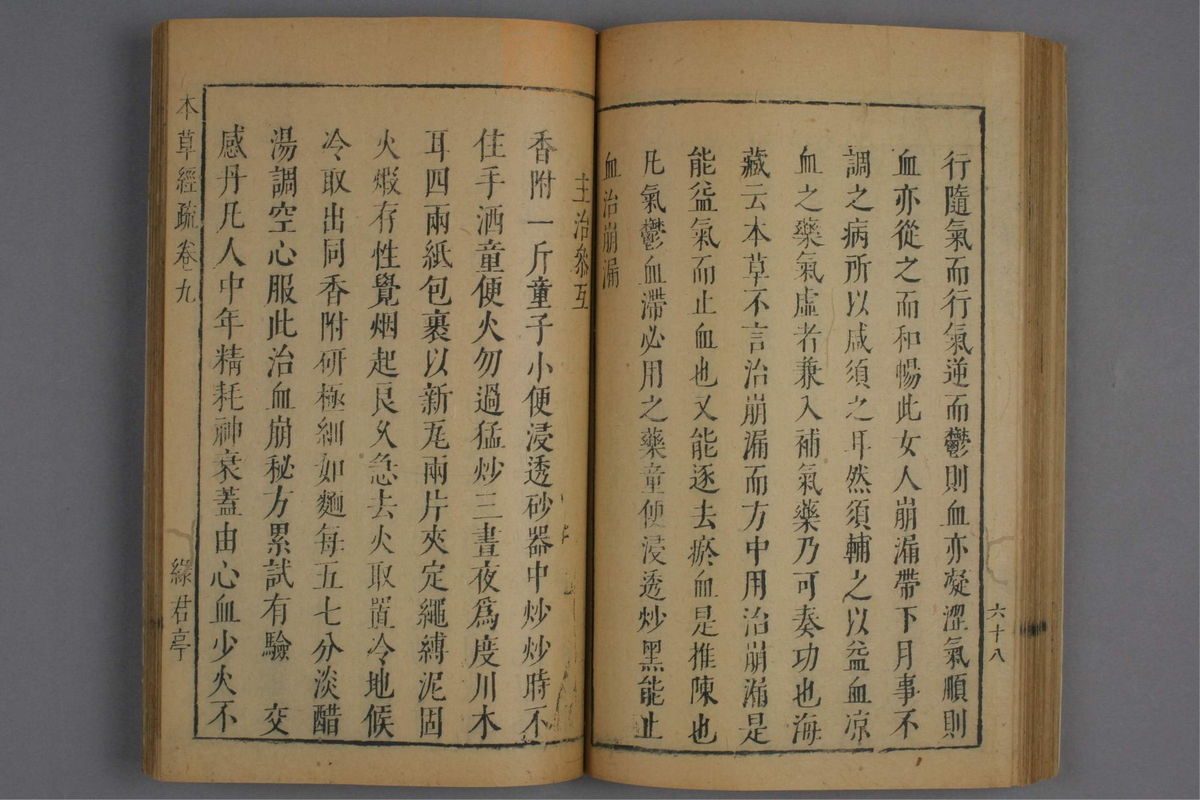 行隨氣而行氣逆而鬱則血亦凝澀氣順則
血亦從之而和暢此女人崩漏帶下月事不
調之病所以咸須之耳然須輔之以益血凉
血之藥氣虛者兼入補氣藥乃可奏功也海
藏云本草不言治崩漏而方中用治崩漏是
能益氣而止血也又能逐去瘀血是推陳也
凡氣鬱血滯必用之藥童便浸透炒黑能止
血治崩漏
六十八
主治參互
香附一斤童子小便浸透砂器中炒炒時不
住手洒童便火勿過猛炒三晝夜爲度川木
耳四兩紙包裹以新瓦兩片夾定繩縛泥固
火煅存性覺烟起良久急去火取置冷地候
冷取出同香附研極細如麵每五七分淡醋
湯調空心服此治血崩秘方累試有驗　交
感丹凡人中年精耗神衰蓋由心血少火不
本草經疏卷九
綠君亭